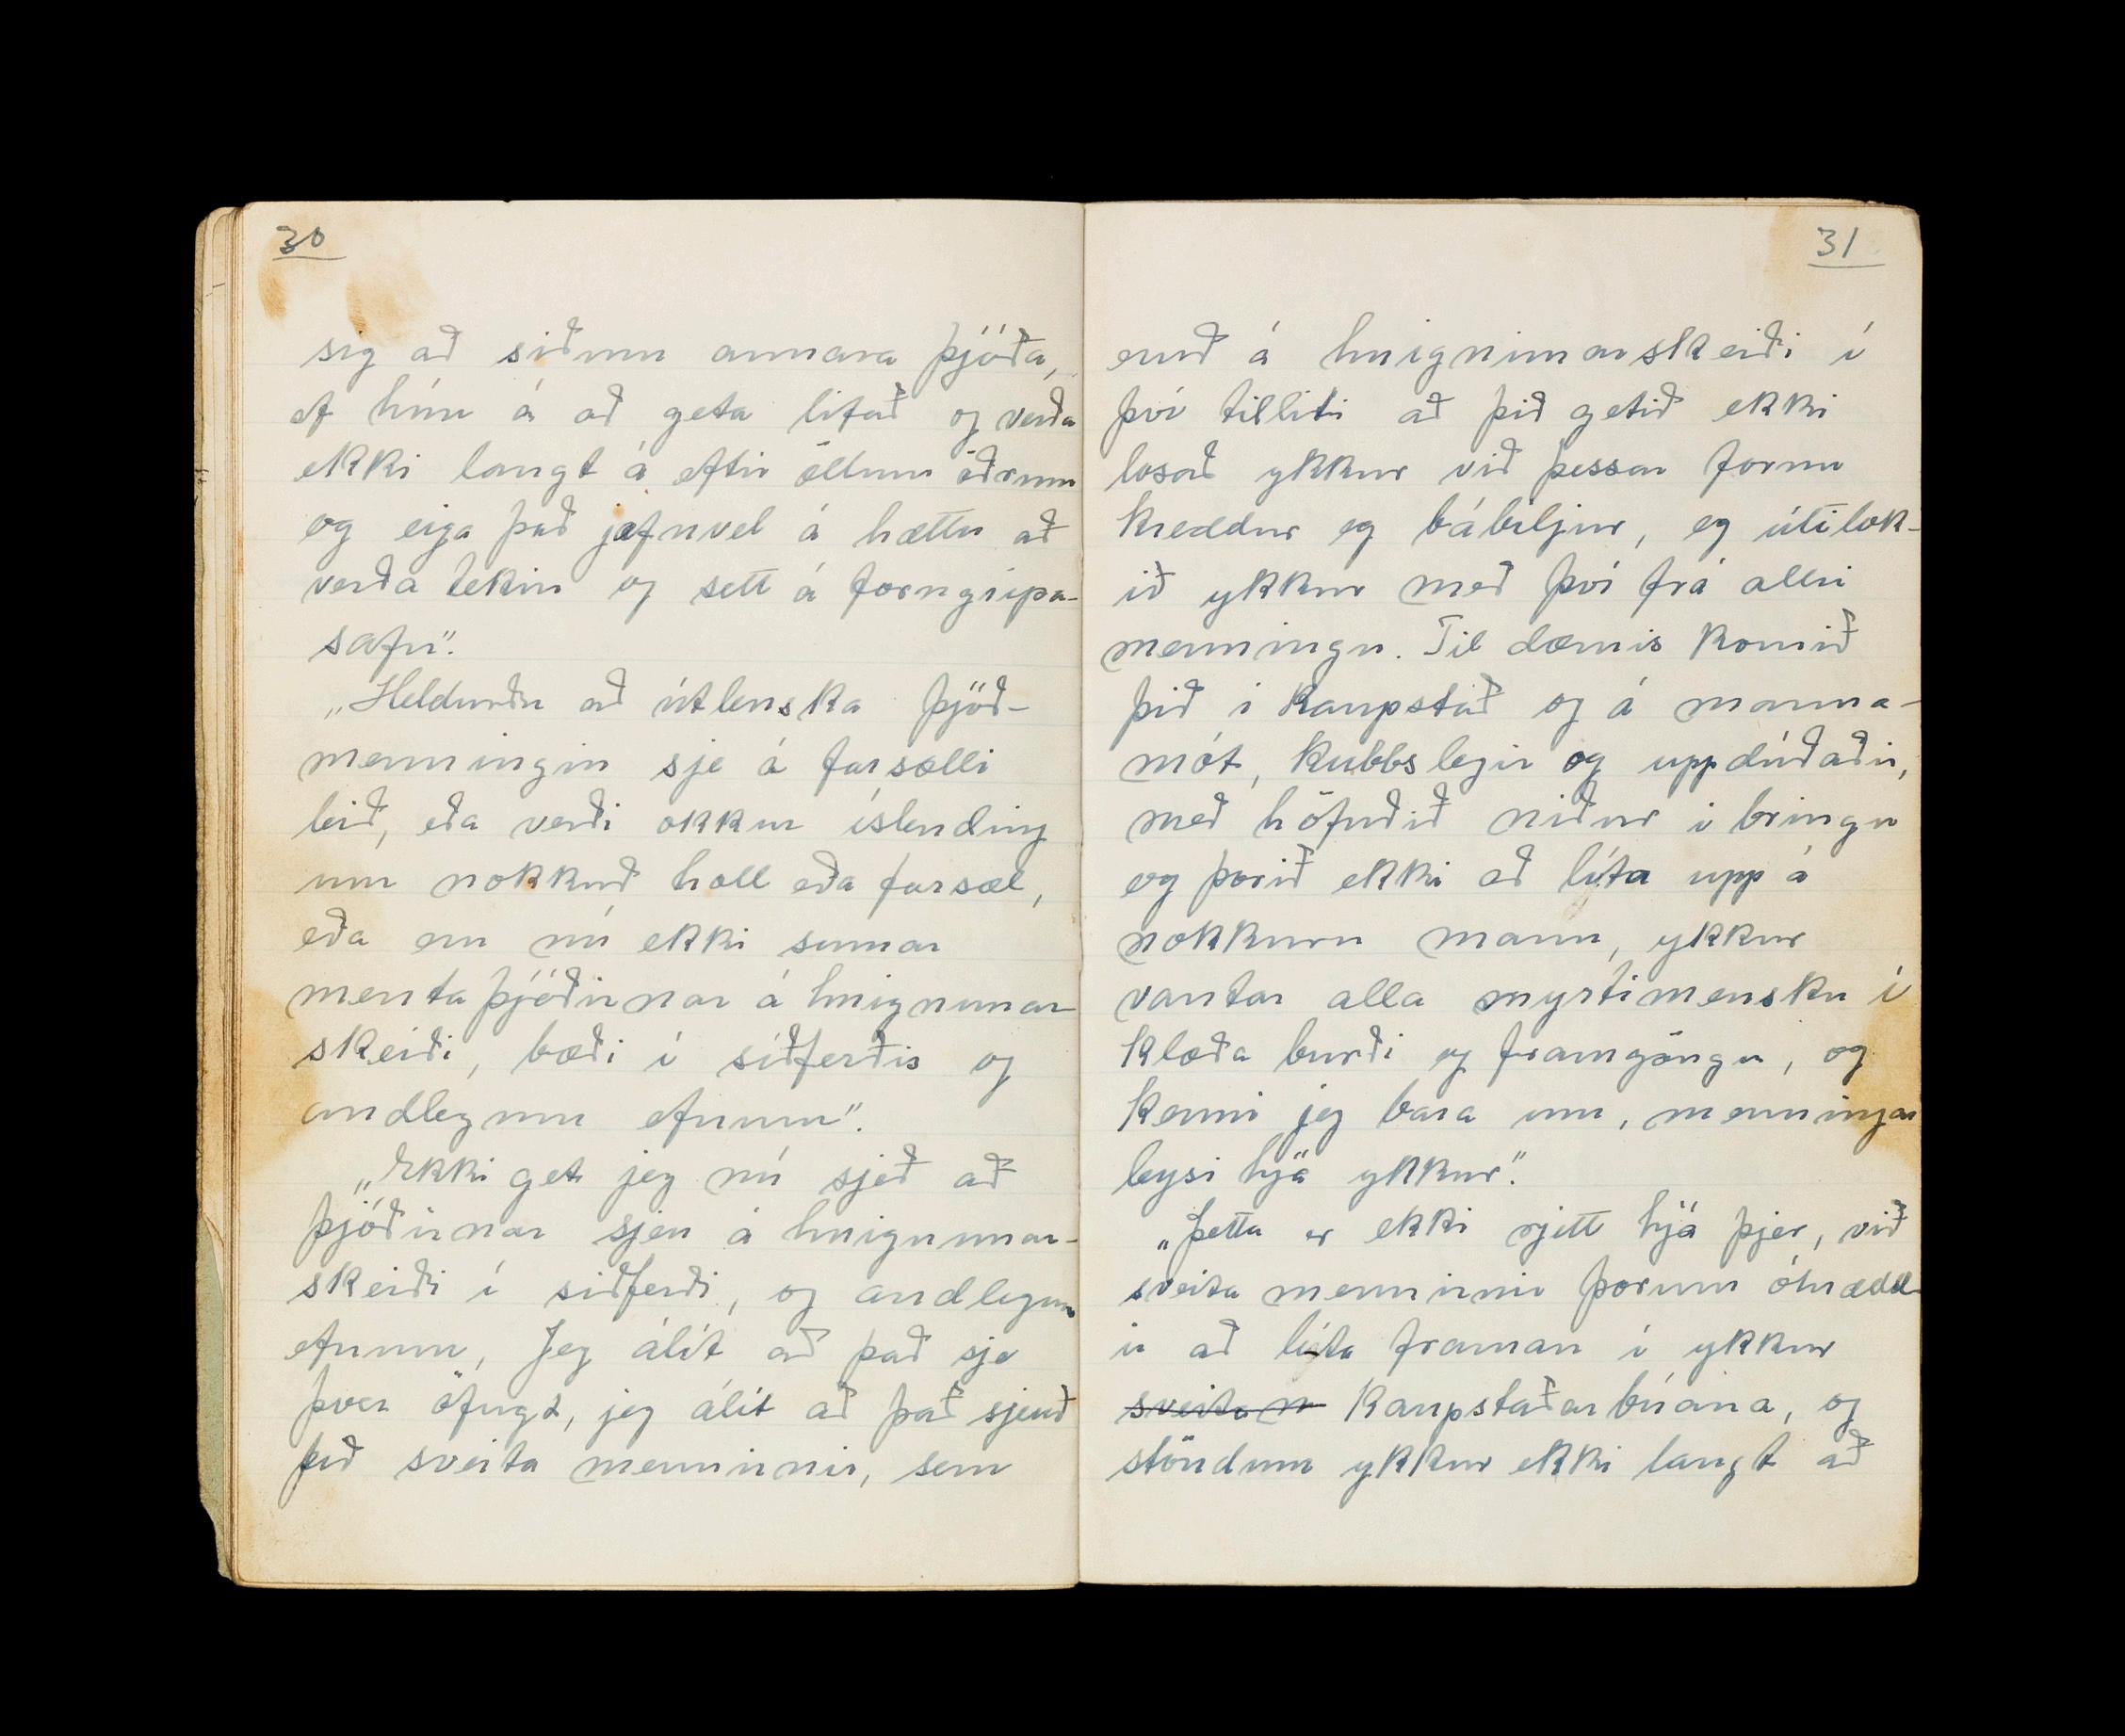 30
sig að siðum annara þjóða,
ef hún á að geta lifað og verða
ekki langt á eftir öllum öðrum
og eiga það jafnvel á hættu að
verða tekin og sett á forngripa-
safn".
„Heldurðu að útlenska þjóð-
menningin sje á farsælli
leið, eða verði okkur íslending
um nokkuð holl eða farsæl,
eða eru nú ekki sumar
menta þjóðirnar á hnignunar
skeiði, bæði í siðferðis og
andlegum efnum".
„Ekki get jeg nú sjeð að
þjóðirnar sjeu á hnignunar-
skeiði í siðferði, og andlegum
efnum, Jeg álít að það sje
þver öfugt, jeg álít að það sjeuð
þið sveita mennirnir, sem
31
eruð á hnignunarskeiði í
því tilliti að þið getið ekki
losað ykkur við þessar fornu
kreddur og bábiljur, og útilok-
ið ykkur með því frá allri
menningu. Til dæmis komið
þið í kaupstað og á manna-
mót, kubbslegir og uppdúðaðir,
með höfuðið niður í bringu
og þorið ekki að líta upp á
nokkurn mann, ykkur
vantar alla myrtimensku í
klæða burði og framgöngu, og
kenni jeg bara um, menningar
leysi hjá ykkur".
„Þetta er ekki rjett hjá þjer, við
sveita mennirnir þorum óhrædd
ir að líta framan í ykkur
sveita m kaupstaðarbúana, og
stöndum ykkur ekki langt að